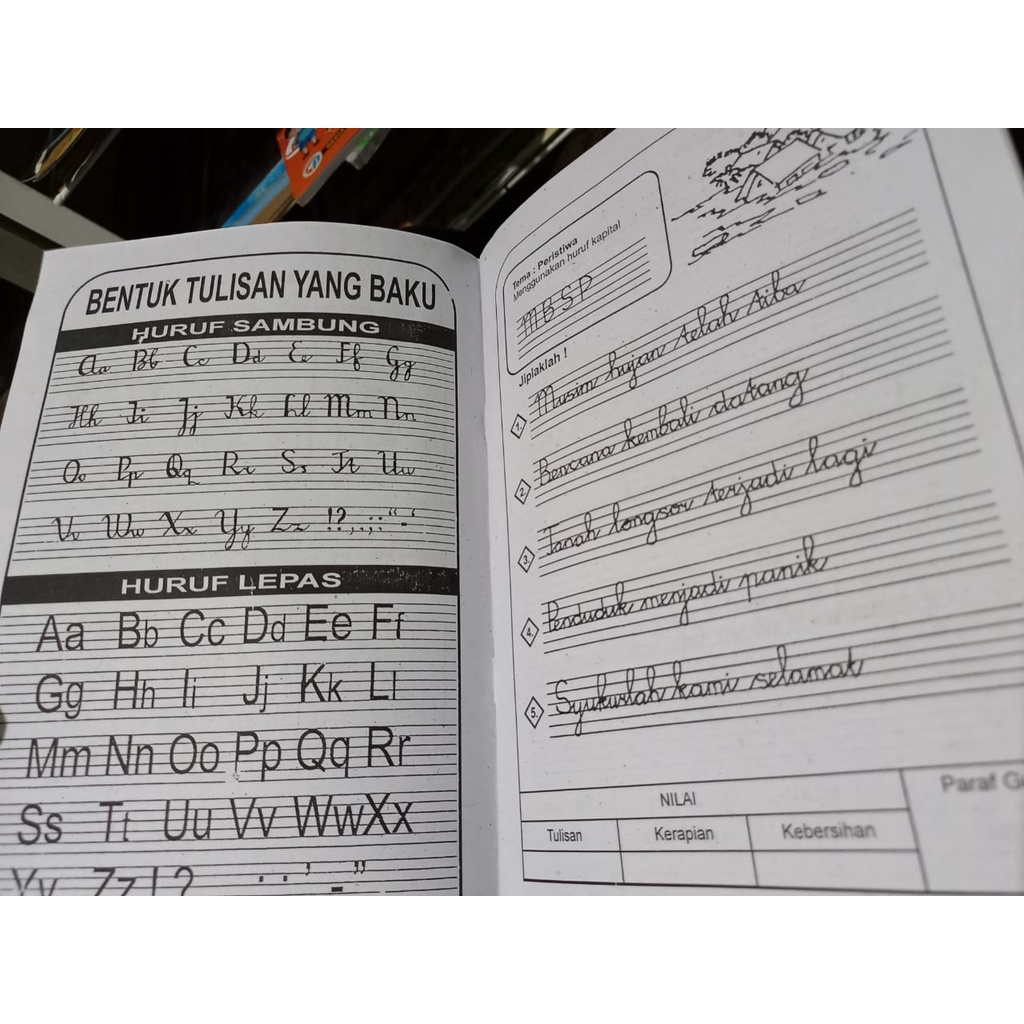 BENTUK TULISAN YANG BAKU
HURUF SAMBUNG
Aa Bb Cc Dd Ee Ff Gg
Hh Ii Jj Kk Ll Mm Nn
Oo Pp Qq Rr Ss Tt Uu
Vv Ww Xx Yy Zz !?,.;:"-'
HURUF LEPAS
Aa Bb Cc Dd Ee Ff
Gg Hh Ii Jj Kk Ll
Mm Nn Oo Pp Qq Rr
Ss Tt Uu Vv Ww Xx
Yy Zz ! ?
Tema : Peristiwa
Menggunakan huruf kapital
M B S P
Jiplaklah !
1. Musim hujan telah tiba
2. Bencana kembali datang
3. Tanah longsor terjadi lagi
4. Penduduk menjadi panik
5. Syukurlah kami selamat
NILAI
Tulisan Kerapian Kebersihan
Paraf